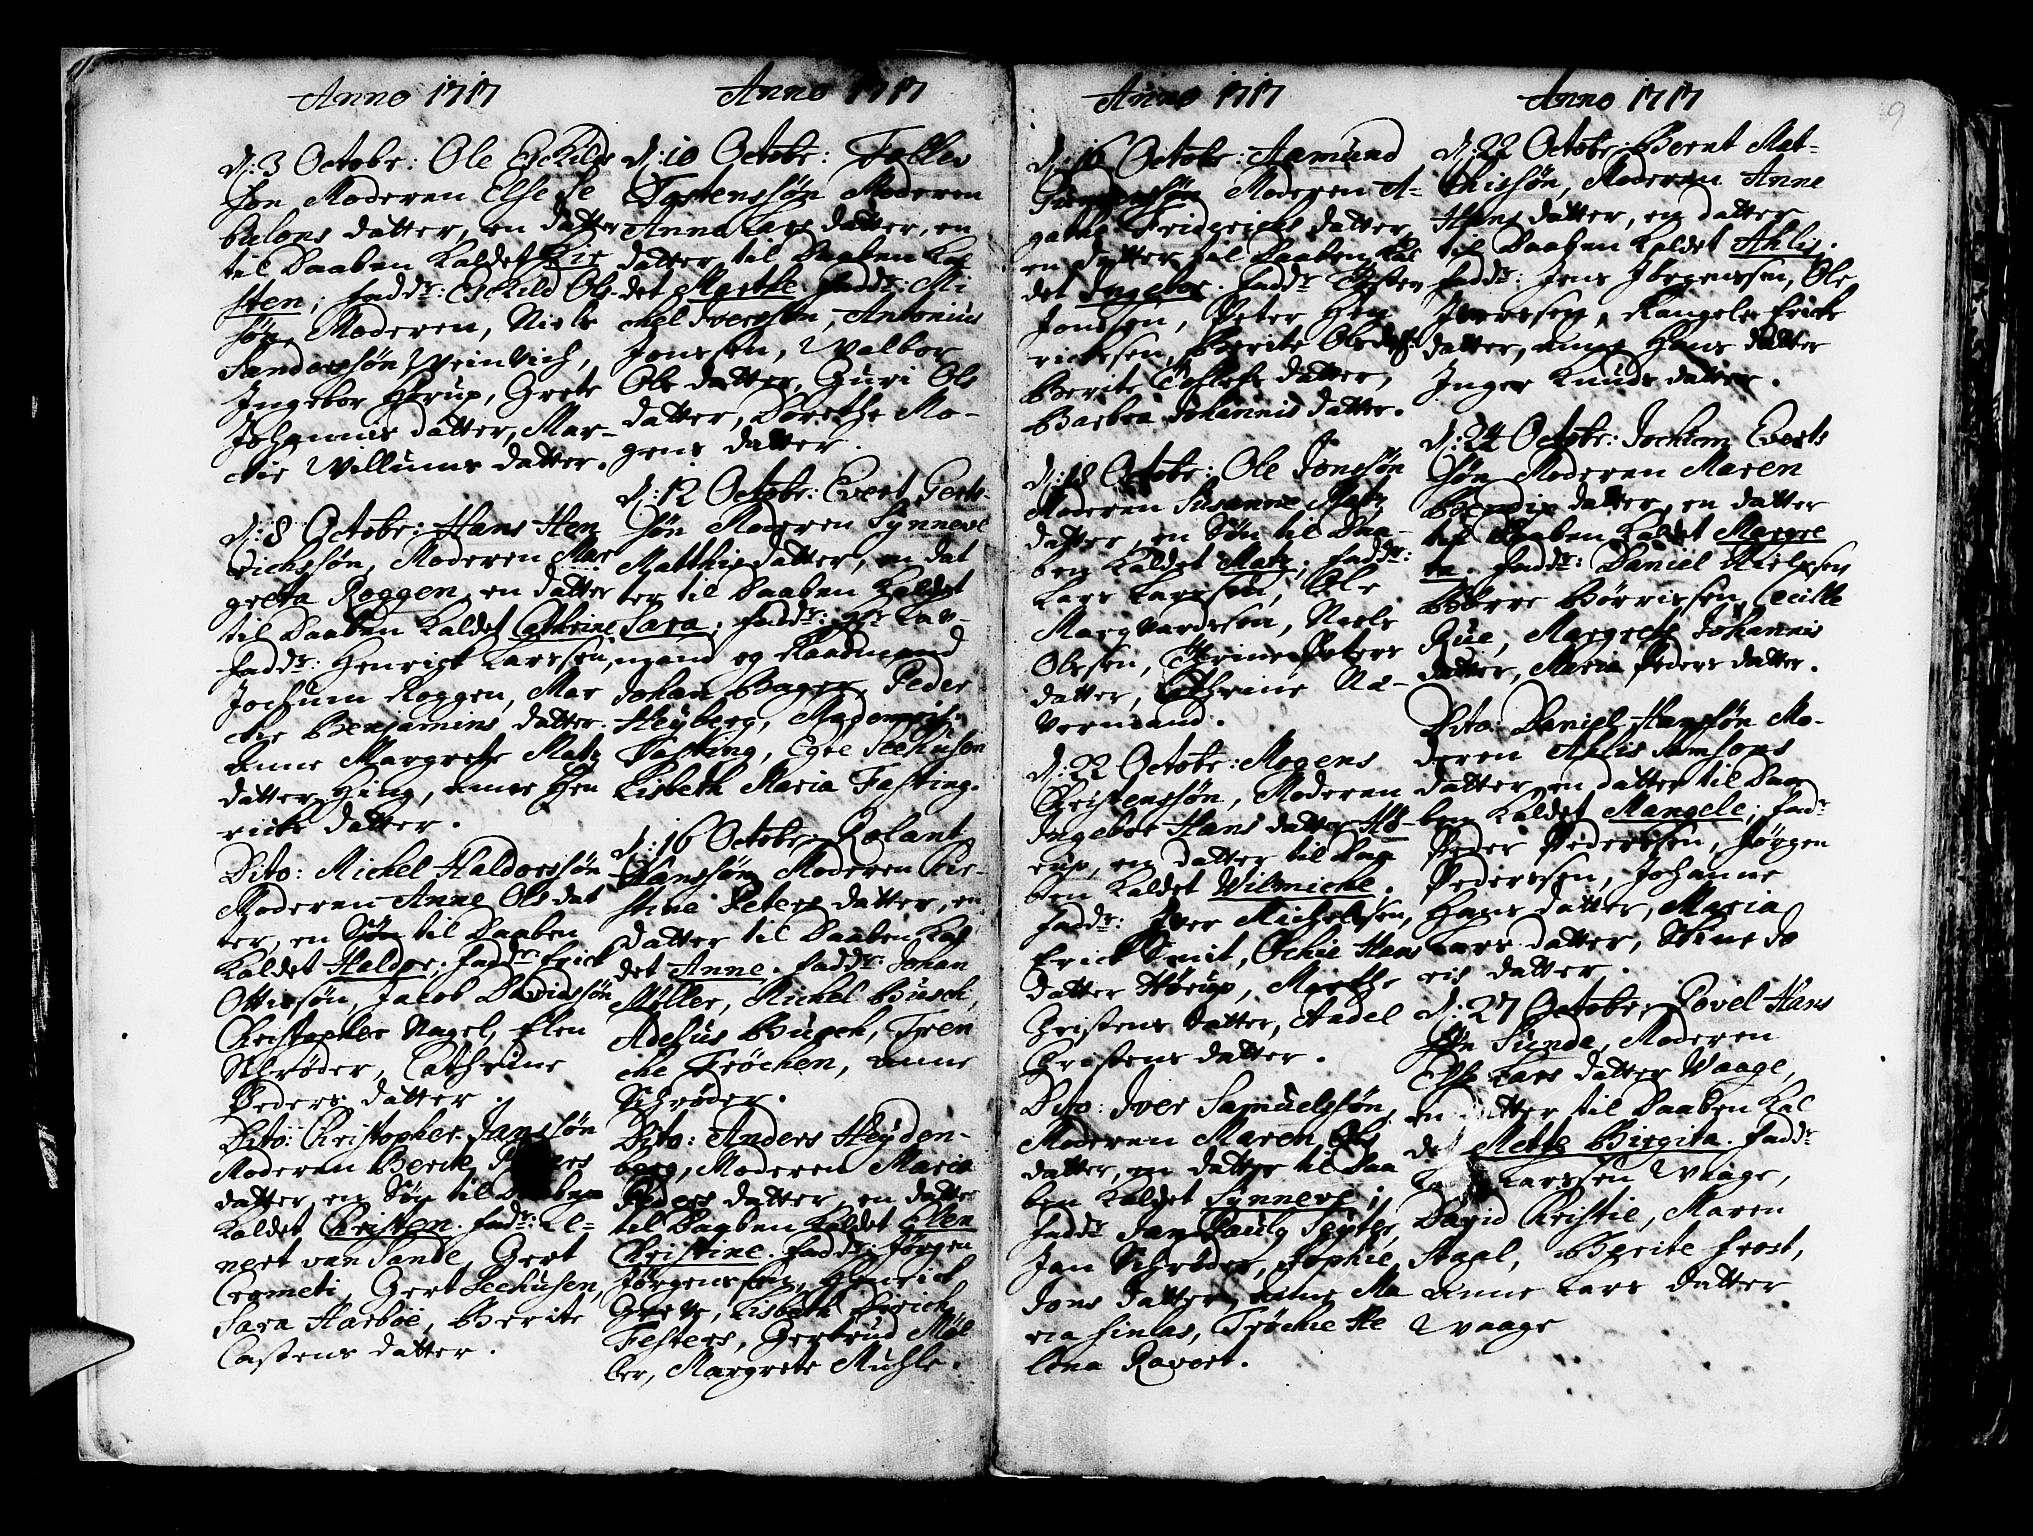 Anno 1717
d: 3 Octobr: Ole Eskilds
søn Moderen Else Se
bulons datter, en datter
til Daaben kaldet Kir
sten; fadd:r Eskild Ols
søn, Moderen, Niels
Sanderssøn Weinvich,
Ingebor Hørup, Grete
Johannis datter, Mar-
chie Willums datter.
d: 8 Octobr: Hans Hen
richssøn, Moderen Mar
greta Roggen, en datter
til Daaben kaldet Cathrine
fadd:r Henrick Larssen,
Jochum Roggen, Mar
chie Benjamins datter.
Anne Margrete Matz
datter Hing, Anne Hen
richs datter.
Dito: Michel Haldorssøn
Moderen Anne Ols dat
ter, en Søn til Daaben
kaldet Haldor; fadd:r Erick
Ottissøn, Jacob Davidssøn
Christopher Nagel, Elen
Schrøder, Cathrine
Peders datter.
Dito: Christopher Janssøn
Moderen Berite
datter, en Søn til Daaben
kaldet Christen. fadd:r Le-
nert van Sande, Gert
Crometi, Gert Seehusen,
Sara Harboe, Berite
Castens datter.
Anno 1717
d: 10 Octobr: Tollev
Tostenssøn Moderen
Anna Lars datter, en
datter til Daaben kal
det Marthe. fadd:r Mi
chel Iverssøn, Antonius
Jonssen, Walbor
Ols datter, Guri Ols
datter, Dorethe Mo-
gens datter.
d: 12 Octobr: Evert Gerts-
søn Moderen Synneve
Matthis datter, en dat
ter til Daaben kaldet
Sara; fadd:r Hr Lav-
mand og Raadmand
Johan Bager, Peder
Heyberg, Madamoisl:
Fasting, Egle Seehusen
Lisbeth Maria Fasting.
d: 16 Octobr: Rolant
Hanssøn Moderen Kir-
stine Peters datter, en
datter til Daaben kal
det Anne. fadd:r Johan
Møller, Michel Busch,
Adelus Bugeh, Tren
che Frøchen, Anne
Schrøder.
Dito: Anders Heyden-
berg, Moderen Maria
Peders datter, en datter
til Daaben kaldet Elen
Christine. fadd:r Jørgen
Jørgenssen, Henrick
Greve, Lisbeth Dirich
Festers, Gertrud Møl
ler, Margrete Muhle.
Anno 1717
d: 16 Octobr: Aamund
Moderen A-
gathe Friderichs datter,
en datter til Daaben kal
det Ingebor. fadd:r Tosten
Jonssen, Peter Hen
richssen, Berite Ols datr
Berite Tollefs datter,
Barbra Johannis datter.
d: 18 Octobr: Ole Jonssøn
Moderen Susanne Matz
datter, en Søn til Daa-
ben kaldet Matz; fadd:r
Lars Larssen, Ole
Marqvardssøn, Niels
Olssen, Trine Peters
datter, Cathrine Næ-
vermand.
d: 22 Octobr: Mogens
Christenssøn, Moderen
Ingebor Hans datter Hø-
rup, en datter til Daa
ben kaldet Wilmiche.
fadd:r Iver Michelssen,
Erick Smit, Øchie Hans
datter Hørup, Marthe
Cristens datter, Aadel
Cristens datter.
Dito: Iver Samuelssøn,
Moderen Maren Ols
datter, en datter til Daa
ben kaldet Synneve;
fadd:r Jan Pauly Seyter,
Jan Schrøder, Sophie
Jons datter, Anne Ma
ria Finlas, Frøchie He
lena Ravert.
Anno 1717
9
d: 22 Octobr: Bernt Mat-
thissøn, Moderen Anne
Hans datter, en datter
til Daaben kaldet Ahlis.
fadd:r Jens Jørgenssen, Ole
Iverssen, Rangele Ericks
datter, Anne Hans datter
Inger Knuds datter.
d: 24 Octobr: Jochim Everts
søn Moderen Maren
Bendix datter, en datter
til Daaben kaldet Margre
ta. fadd:r Daniel Nielssen
Børre Børrissen, Cecille
Rue, Margrete Johannis
datter, Maria Peders datter.
Dito: Daniel Hanssøn Mo-
deren Ahlis Samsons
datter, en datter til Daa
ben kaldet Mangele; fadr
Peder Pederssen, Jørgen
Pederssen, Johanne
Hans datter, Maria
Lars datter, Stine Jo
ris datter.
d: 27 Octobr: Povel Hans
søn Sunde, Moderen
Else Lars datter Waage,
en datter til Daaben kal
det Mette Birgita. fadd:r
Larssen Waage,
David Christie, Maren
Staal, Berite Frost,
Anne Lars datter
Waage